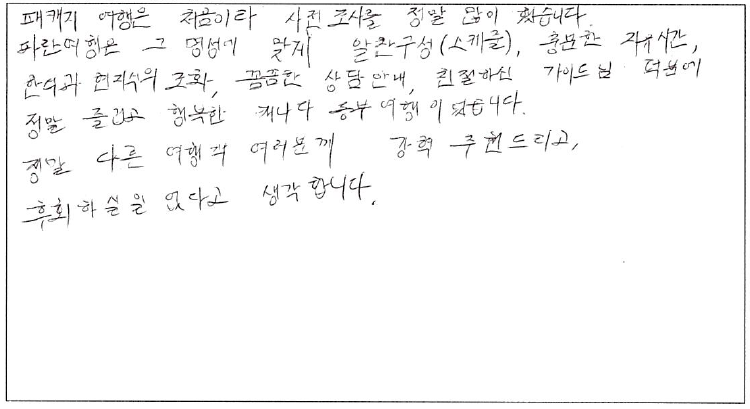 패캐지 여행은 처음이라 사전 조사를 정말 많이 했습니다.
파란여행은 그 명성에 맞게 알찬구성(스케줄), 충분한 자유시간,
한식과 현지식의 조화, 꼼꼼한 상담 안내, 친절하신 가이드님 덕분에
정말 즐겁고 행복한 캐나다 동부 여행이었습니다.
정말 다른 여행객 여러분께 강력 추천드리고,
후회하실일 없다고 생각합니다.